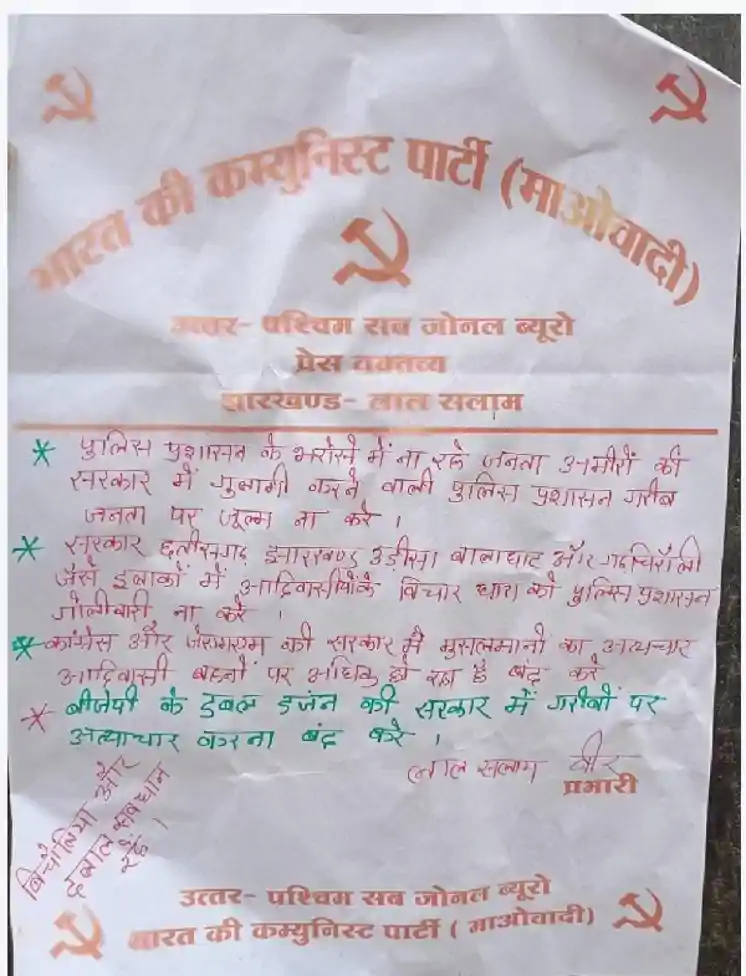 भारत की कम्युनिस्ट पार्टी (माओवादी)
उत्तर- पश्चिम सब जोनल ब्यूरो
प्रेस वक्तव्य
झारखण्ड- लाल सलाम
* पुलिस प्रशासन के भरोसे में ना रहे जनता अमीरों की
सरकार में गुलामी करने वाली पुलिस प्रशासन गरीब
जनता पर जूल्म ना करे ।
* सरकार छत्तीसगढ़ झारखण्ड उडीसा बालाघाट और गढ़चिरौली
जैसे इलाकों में आदिवासीयोंके विचार धारा को पुलिस प्रशासन
गोलीबारी ना करे ।
* कांग्रेस और की सरकार में मुसलमानो का अत्यचार
आदिवासी बहनों पर अधिक हो रहा है बंद करे
* बीजेपी के डबल इजंन की सरकार में गरीबों पर
अत्याचार करना बंद करे ।
लाल सलाम वीर
प्रभारी
बिचौलिया और
दलाल सावधान
रहे ।
उत्तर- पश्चिम सब जोनल ब्यूरो
भारत की कम्युनिस्ट पार्टी ( माओवादी)